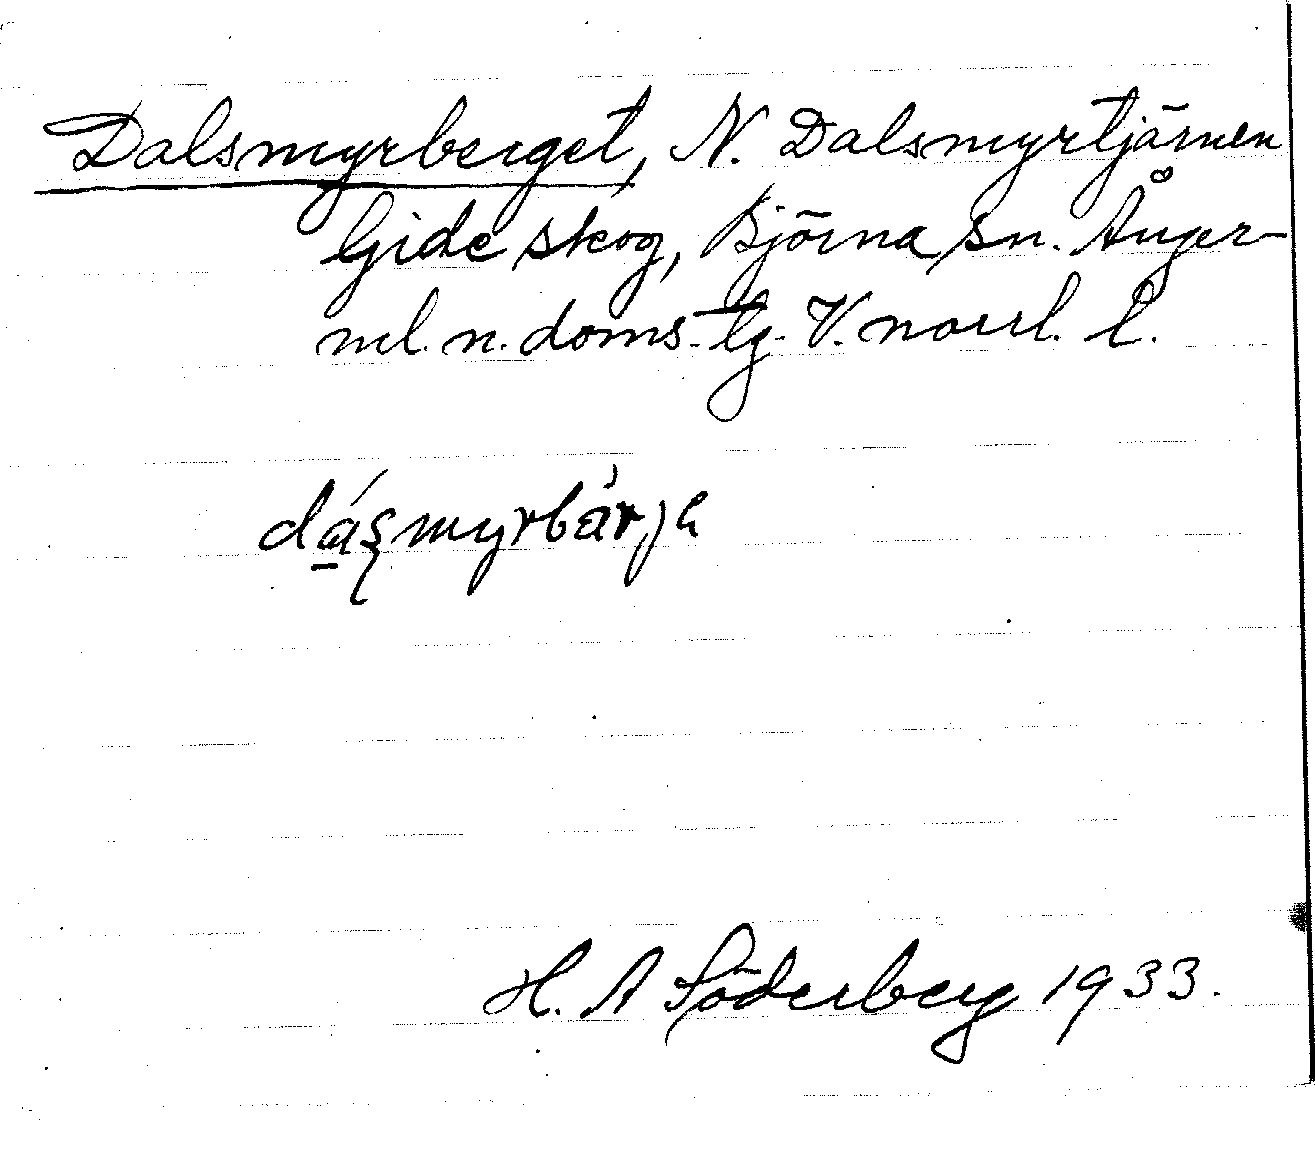 Dalsmyrberget, N. Dalsmyrtjärnen
Gide skog, Björna sn. Ånger-
ml. n. doms. tg. V. norrl. l.
dásmyrbàrjə
H. A Söderberg 1933.